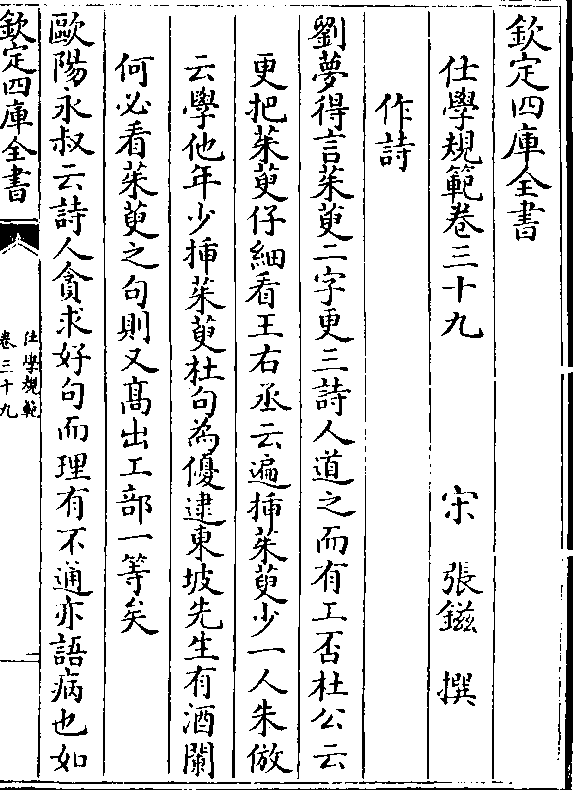 欽定四庫全書
仕學規範卷三十九
宋 張鎡 撰
作詩
劉夢得言茱萸二字更三詩人道之而有工否杜公云
更把茱萸仔細看王右丞云遍揷茱萸少一人朱倣
云學他年少揷茱萸杜句為優逮東坡先生有酒闌
何必看茱萸之句則又髙出工部一等矣
歐陽永叔云詩人貪求好句而理有不通亦語病也如
欽定四庫全書
仕學規範
卷三十九